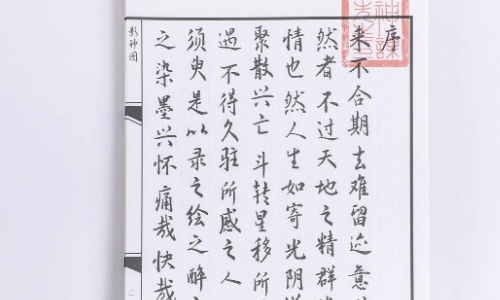 序
来不合期去难留迹意
然者不过天地之精群
情也然人生如寄光阴
聚散兴亡斗转星移所
遇不得久驻所感之人
须臾是以录之绘之醉
之染墨兴怀痛哉快哉
影神图